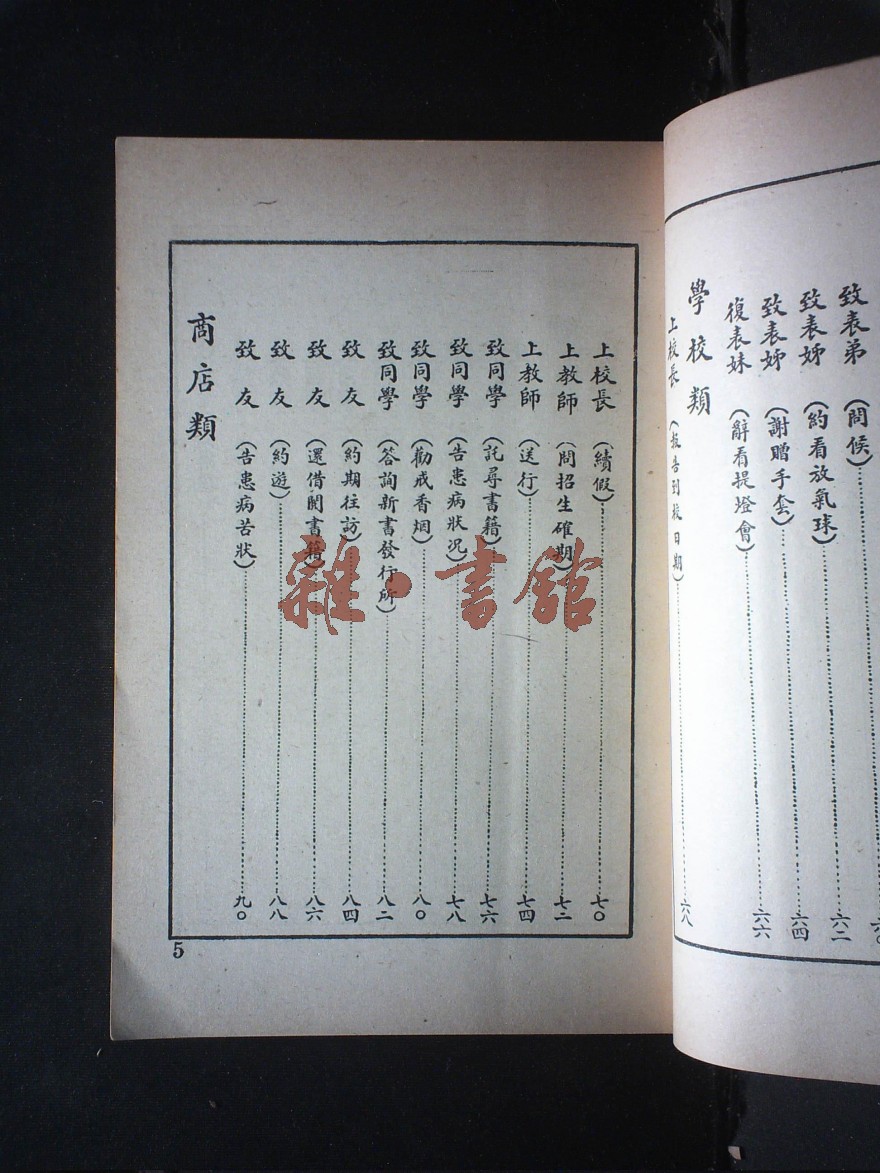 致表弟(問候)
致表姊(約看放氣球)……六二
致表姊(謝贈手套)……六四
復表妹(辭看提燈會)……六六
學校類
上校長(報告到校日期)……六八
上校長(續假)……七〇
上教師(問招生確期)……七二
上教師(送行)……七四
致同學(託尋書籍)……七六
致同學(告患病狀况)……七八
致同學(勸戒香烟)……八〇
致同學(答詢新書發行所)……八二
致友(約期往訪)……八四
致友(還借閱書籍)……八六
致友(約遊)……八八
致友(告患病苦狀)……九〇
商店類
5
雜·書館